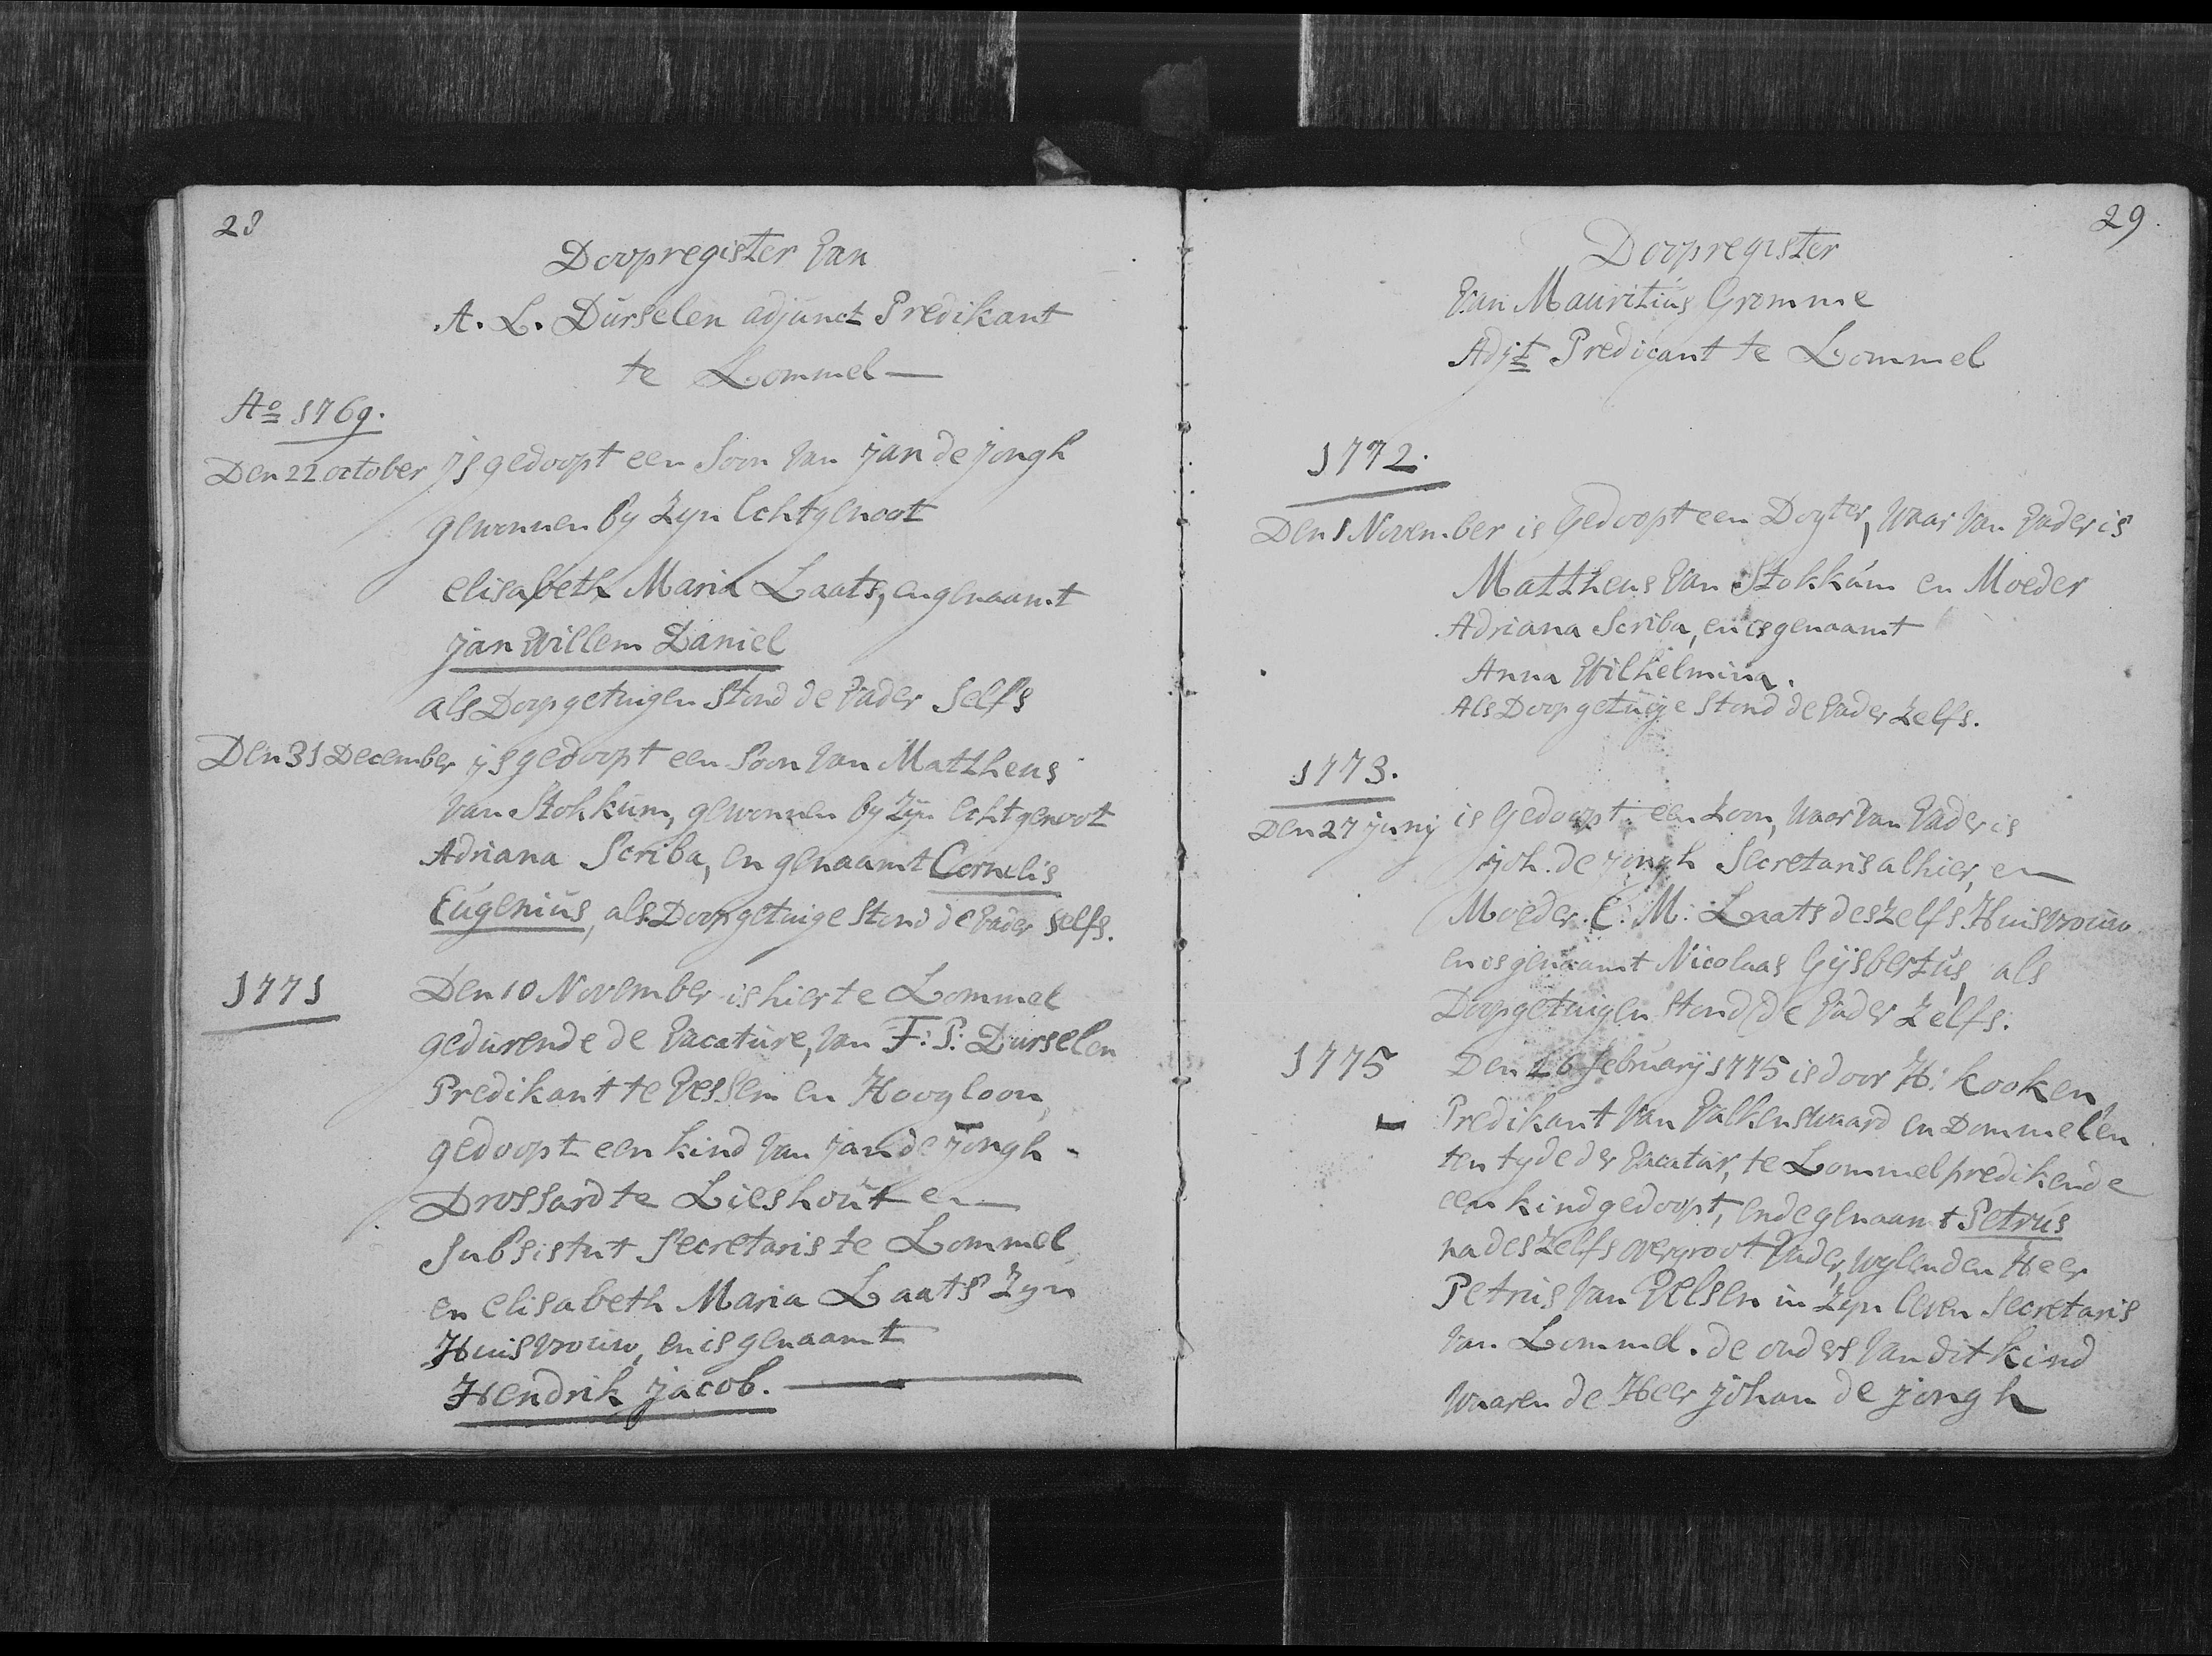 28
Doopregister Van
A. L. Dürselen adjunct Predikant
te Lommel —
Ao 1769.
Den 22 october ys gedoopt een Soon Van jan de jongh
gewonnen by Zyn Echtgenoot
elisabeth Maria Laats, en genaamt
jan Willem Daniel
als Doopgetuigen Stond de Vader Selfs
Den 31 December ys gedoopt een Soon Van Mattheus
Van Stokkum, gewonnen by Zyn echtgenoot
Adriana Scriba, en genaamt Cornelis
Eugenius, als Doopgetuige Stond de Vader selfs.
1771 Den 10 November is hier te Lommel
gedurende de Vacature, van F: P: Durselen
Predikant te Vessem en Hoogloon,
gedoopt een kind Van jan de jongh
Drossard te Lieshout en
Subsistut Secretaris te Lommel,
en elisabeth Maria Laats Zyn
Huisvrouw, en is genaamt
Hendrik jacob. —
29.
Doopregister
Van Mauritius Gromme
Adjt Predicant te Lommel
1772.
Den 1 November is Gedoopt een Dogter, Waar Van Vader is
Mattheus Van Stokkum en Moeder
Adriana Scriba, en is genaamt
Anna Wilhelmina.
Als Doopgetuige Stond de Vader Zelfs.
1773.
Den 27 junij is Gedoopt een Zoon, Waar Van Vader is
joh. de jongh Secretaris alhier, en
Moeder E: M: Laats deszelfs Huisvrouw
en is genaamt Nicolaas Gijsbertus, als
Doopgetuigen Stond de Vader Zelfs.
1775 Den 26 februarij 1775 is door H: Kooken
Predikant Van Valkenswaard en Dommelen
ten tyde der Vacatur, te Lommel predikende
een kind gedoopt, ende genaamt Petrus
na deszelfs overgroot Vader, wylen den Heer
Petrus Van Velsen in Zyn leven Secretaris
Van Lommel. de ouders Van dit kind
Waaren de Heer johan de jongh